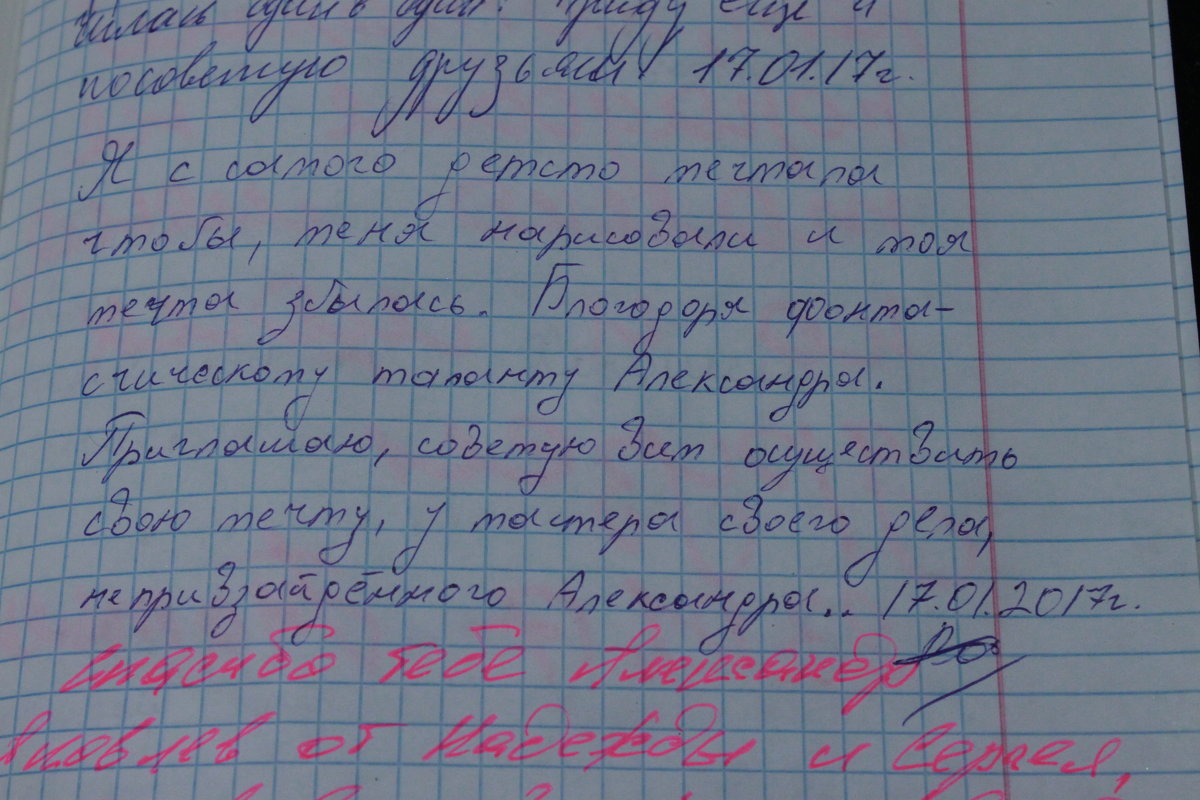 один в один! Приду ещё и
посоветую друзьям! 17.01.17г.
Я с самого детсто мечтала
чтобы, меня нарисовали и моя
мечта збылась. Благодоря фонта-
стическому таланту Александра.
Приглашаю, советую Вам осуществить
свою мечту, у мастера своего дела,
непривзайдённого Александра.. 17.01.2017г.
спасибо тебе Александр
Яковлев от Надежды и Сергея,